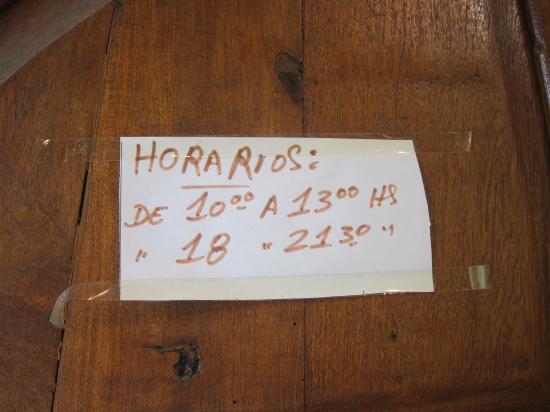 HORARIOS:
DE 10⁰⁰ A 13⁰⁰ HS
" 18 " 21³⁰ "